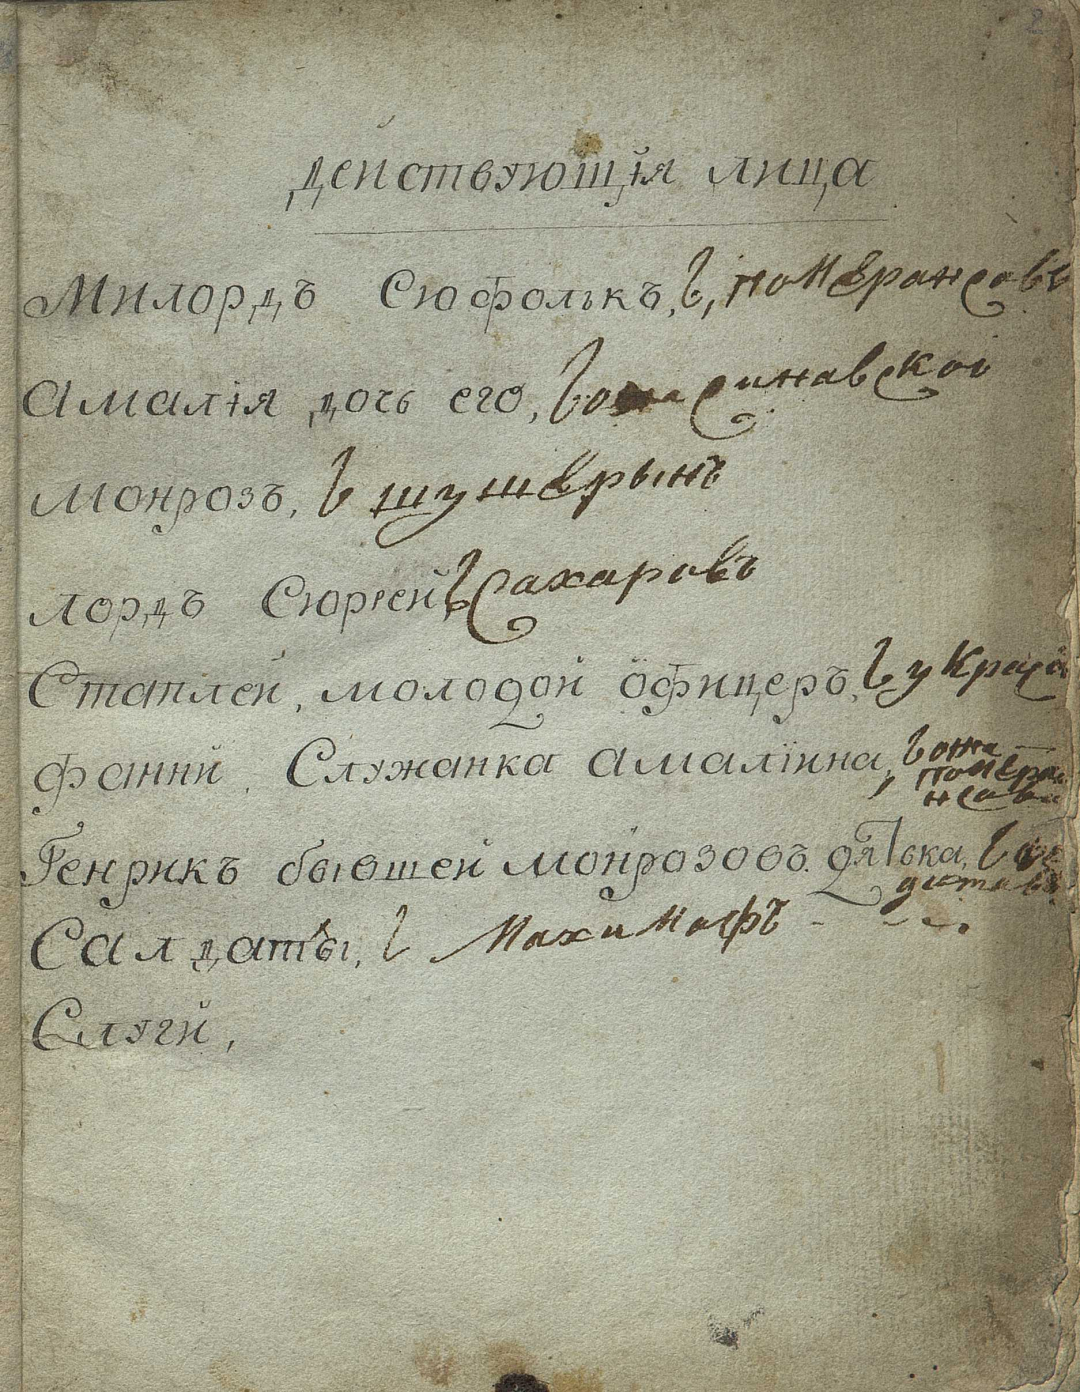 2
действующія лица
Милордъ Сюфолькъ, г, померансовъ
Амалія дочь его, гожа синавской
Монрозъ, г шушерынъ
лордъ Сюррей, г сахаровъ
Стаплей, молодой офицеръ, г украсо
фанни, Служанка амаліина, гожа
помера
нсова
Генрикъ бывшей монрозовъ дядька, г
Салдаты, г
Слуги,